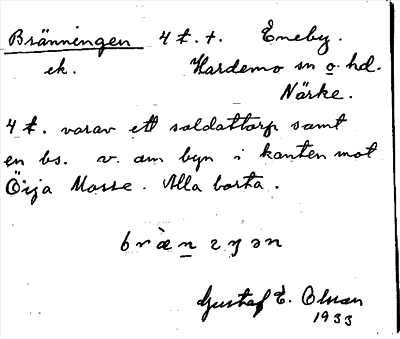 Bränningen 4 t. t. Eneby.
ek. Hardemo sn o. hd.
Närke.
4 t. varav ett soldattorp samt
en bs. v. om byn i kanten mot
Öija Mosse. Alla borta.
Gustaf E. Olsson
1933